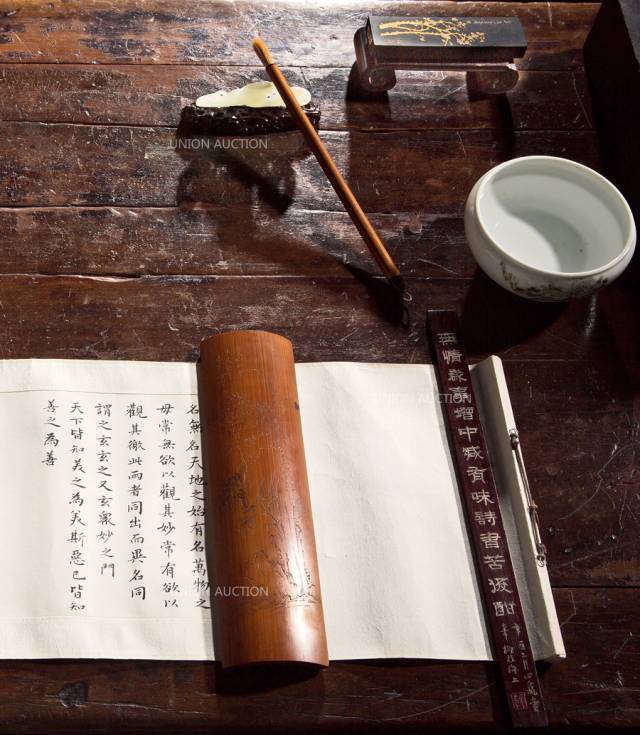 UNION AUCTION
無情歲月增中減有味詩書苦後
UNION AUCTION
名無名天地之始有名萬物之
母常無欲以觀其妙常有欲以
觀其徼此兩者同出而異名同
謂之玄玄之又玄衆妙之門
天下皆知美之為美斯惡已皆知
善之為善
UNION AUCTION